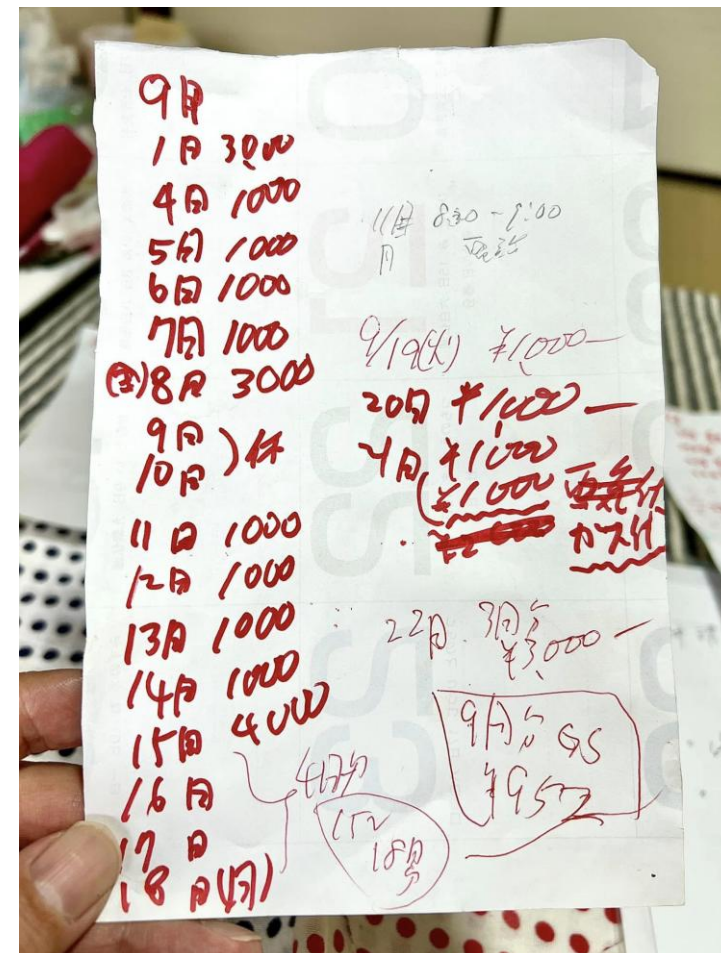 9月
1日 3000
4日 1000
5日 1000
6日 1000
7日 1000
(金)8日 3000
9日
10日 )休
11日 1000
12日 1000
13日 1000
14日 1000
15日 4000
16日
17日
18日(月)
4日分
18日分
11日 8:30-9:00
月
9/19(火) ¥1,000-
20日 ¥1,000-
¥1000
(¥1000
ガス代
22日 3日分
¥3,000-
9月分 GS
¥952